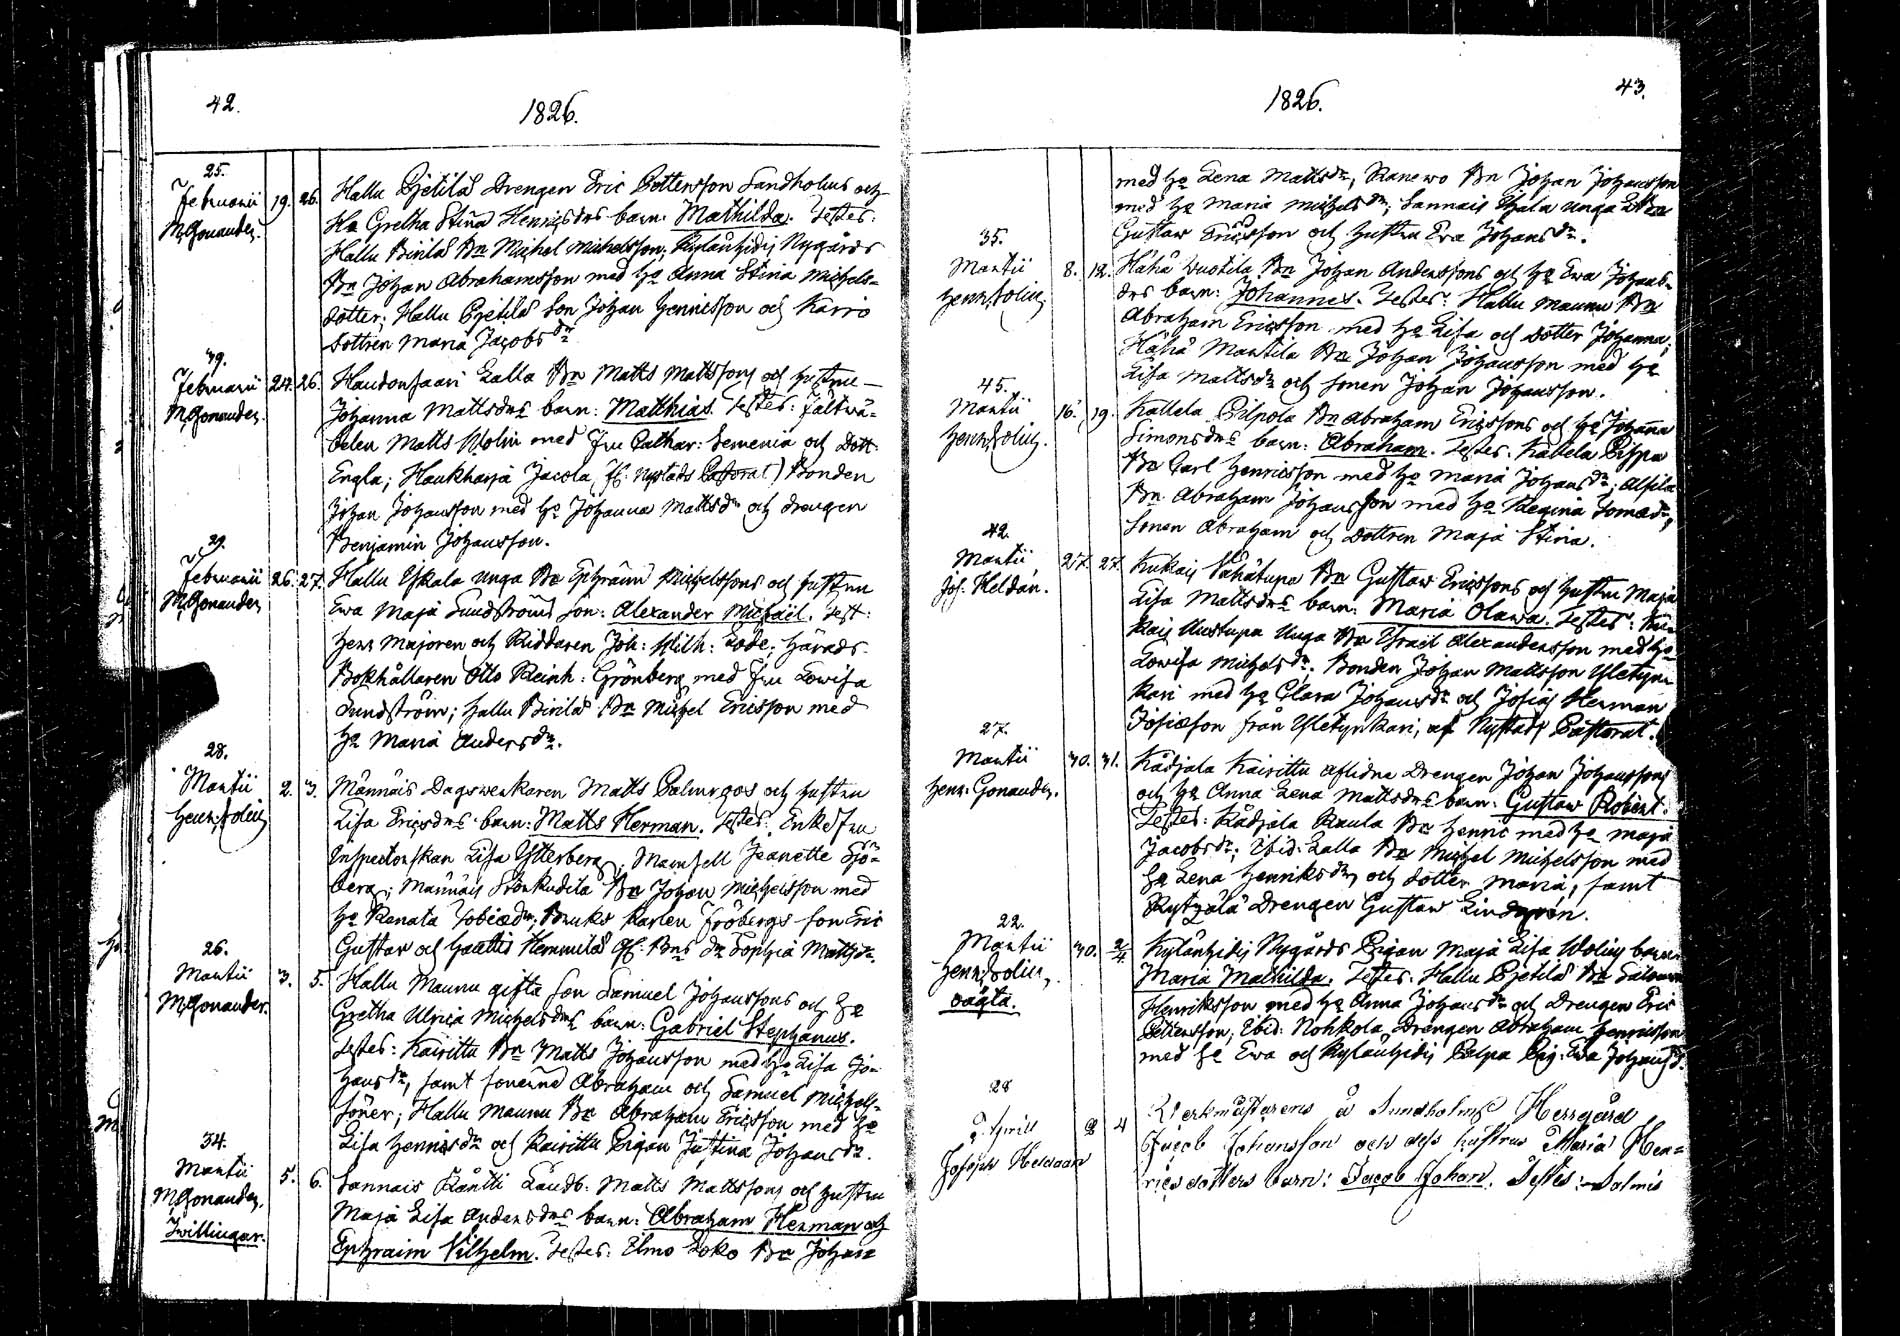 42.
1826.
25.
Februarii 19. 26. Hallu Pjetilä Drengen Eric Pettersson Sandholms och
M. Gonander. Ha Gretha Stina Henricsdrs barn: Mathilda. Testes:
Hallu Pirilä Bn Michel Michelsson; Kyläuhidis Nygårds
Bn Johan Abrahamsson med ha Anna Stina Michels-
dotter; Hallu Pjetilä Son Johan Henricsson och Karro
dottren Maria Jacobsdr
39.
Februarii 24. 26. Haudonsaari Lalla Bn Matts Mattssons och hustru
M. Gonander. Johanna Mattsdrs barn: Matthias. Testes: Fältwä-
belen Matts Wolin med Fru Cathar: Semenia och Dott:
Engla; Haukharja Jacola (af Nystads Pastorat) Bonden
Johan Johansson med ha Johanna Mattsdr och drengen
Benjamin Johansson.
29.
Februarii 26. 27. Hallu Yskala unga Bn Ephraim Michelssons och hustru
M. Gonander Ewa Maja Sundströms son: Alexander Michaël. Test:
Herr Majoren och Riddaren Joh: Wilh: Tode; Härads-
Bokhållaren Otto Reinh: Grönberg med Fru Lowisa
Sundström; Hallu Pirilä Bn Michel Ericsson med
ha Maria Andersdr.
28.
Martii 2. 3. Männäis Dagswerkaren Matts Palmgros och hustru
Henr. Polin Lisa Ericsdrs barn: Matts Herman. Testes: Enkefru
Inspectorskan Lisa Ytterberg; Mamsell Jeanette Sjö-
berg; Männäis Storkudila Bn Johan Michelsson med
ha Renata Tobiædr; Bruks Karlen Fröbergs son Eric
Gustaf och Hemmilä Bns Dr Sophia Mattsdr.
26.
Martii 3. 5. Hallu Maunu gifta son Samuel Johanssons och ha
M. Gonander. Gretha Ulrica Michelsdrs barn: Gabriel Stephanus.
Testes: Kairittu Bn Matts Johansson med ha Lisa Jo-
hansdr, samt sönerne Abraham och Samuel Michels-
söner; Hallu Maunu Bn Abraham Ericsson med ha
Lisa Henricsdr och Kairittu Pigan Justina Johansdr.
34.
Martii 5. 6. Sannais Räntti Landb: Matts Mattssons och hustru
M. Gonander. Maja Lisa Andersdrs barn: Abraham Herman och
Twillingar. Ephraim Vilhelm. Testes: Elmo Koko Bn Johan
1826.
43.
med ha Lena Mattsdr, Ranewo Bn Johan Johansson
med ha Maria Michelsdr; Sannais Yjala unga
Gustaw Ericsson och hustru Ewa Johansdr.
35.
Martii 8. 12. Hähä Wuotila Bn Johan Anderssons och ha Ewa Johans-
Henr. Polin drs barn: Johannes. Testes: Hallu Maunu Bn
Abraham Ericsson med ha Lisa och dotter Johanna;
Häihä Martila Bn Johan Johansson med ha
Lisa Mattsdr och sonen Johan Johansson.
45.
Martii 16. 19. Kallela Pilpola Bn Abraham Ericssons och ha Johanna
Henr. Polin. Simonsdrs barn: Abraham. Testes: Kallela Pispa
Bn Carl Henricsson med ha Maria Johansdr; Alhila
Bn Abraham Johansson med ha Regina Tomædr,
Sonen Abraham och dottren Maja Stina.
42.
Martii 27. 27. Kukais Sahatupa Bn Gustaw Ericssons och hustru Maja
Jos. Heldán. Lisa Mattsdrs barn: Maria Olawa. Testes: Ku-
kais Uustupa Unga Bn Israel Alexandersson med ha
Lowisa Michelsdr; Bonden Johan Mattsson Yletyn-
kari med ha Clara Johansdr och Josias Herman
Josiæson från Yletynkari, af Nystads Pastorat.
27.
Martii 30. 31. Kådjala Kairittu aflidne Drengen Johan Johanssons
Henr. Gonander. och ha Anna Lena Mattsdrs barn: Gustaw Robert.
Testes: Kådjala Raula Bn Henric med ha Maja
Jacobsdr; Ibid: Lalla Bn Michel Michelsson med
ha Lena Henriksdr och dotter Maria, samt
Drengen Gustaw Lindgrén.
22.
Martii 30. 2/4 Kyläuhidis Nygårds Pigan Maja Lisa Wolins barn
Henr. Polin, Maria Mathilda. Testes: Hallu Pjetilä Bn Salomon
oägta. Henriksson med ha Anna Johansdr och Drengen Eric
Pettersson; Ibid: Nohkola Drengen Abraham Henricsson
med ha Ewa och Kyläuhidis Palpa Pig: Ewa Johansdr.
28
Aprill 2 4 Werkmästarens å Sundholms Herrgård
Joseph Heldaan Jacob Johansson och dess hustrus Maria Hen-
ricsdotters barn: Jacob Johan. Testes: Salmis